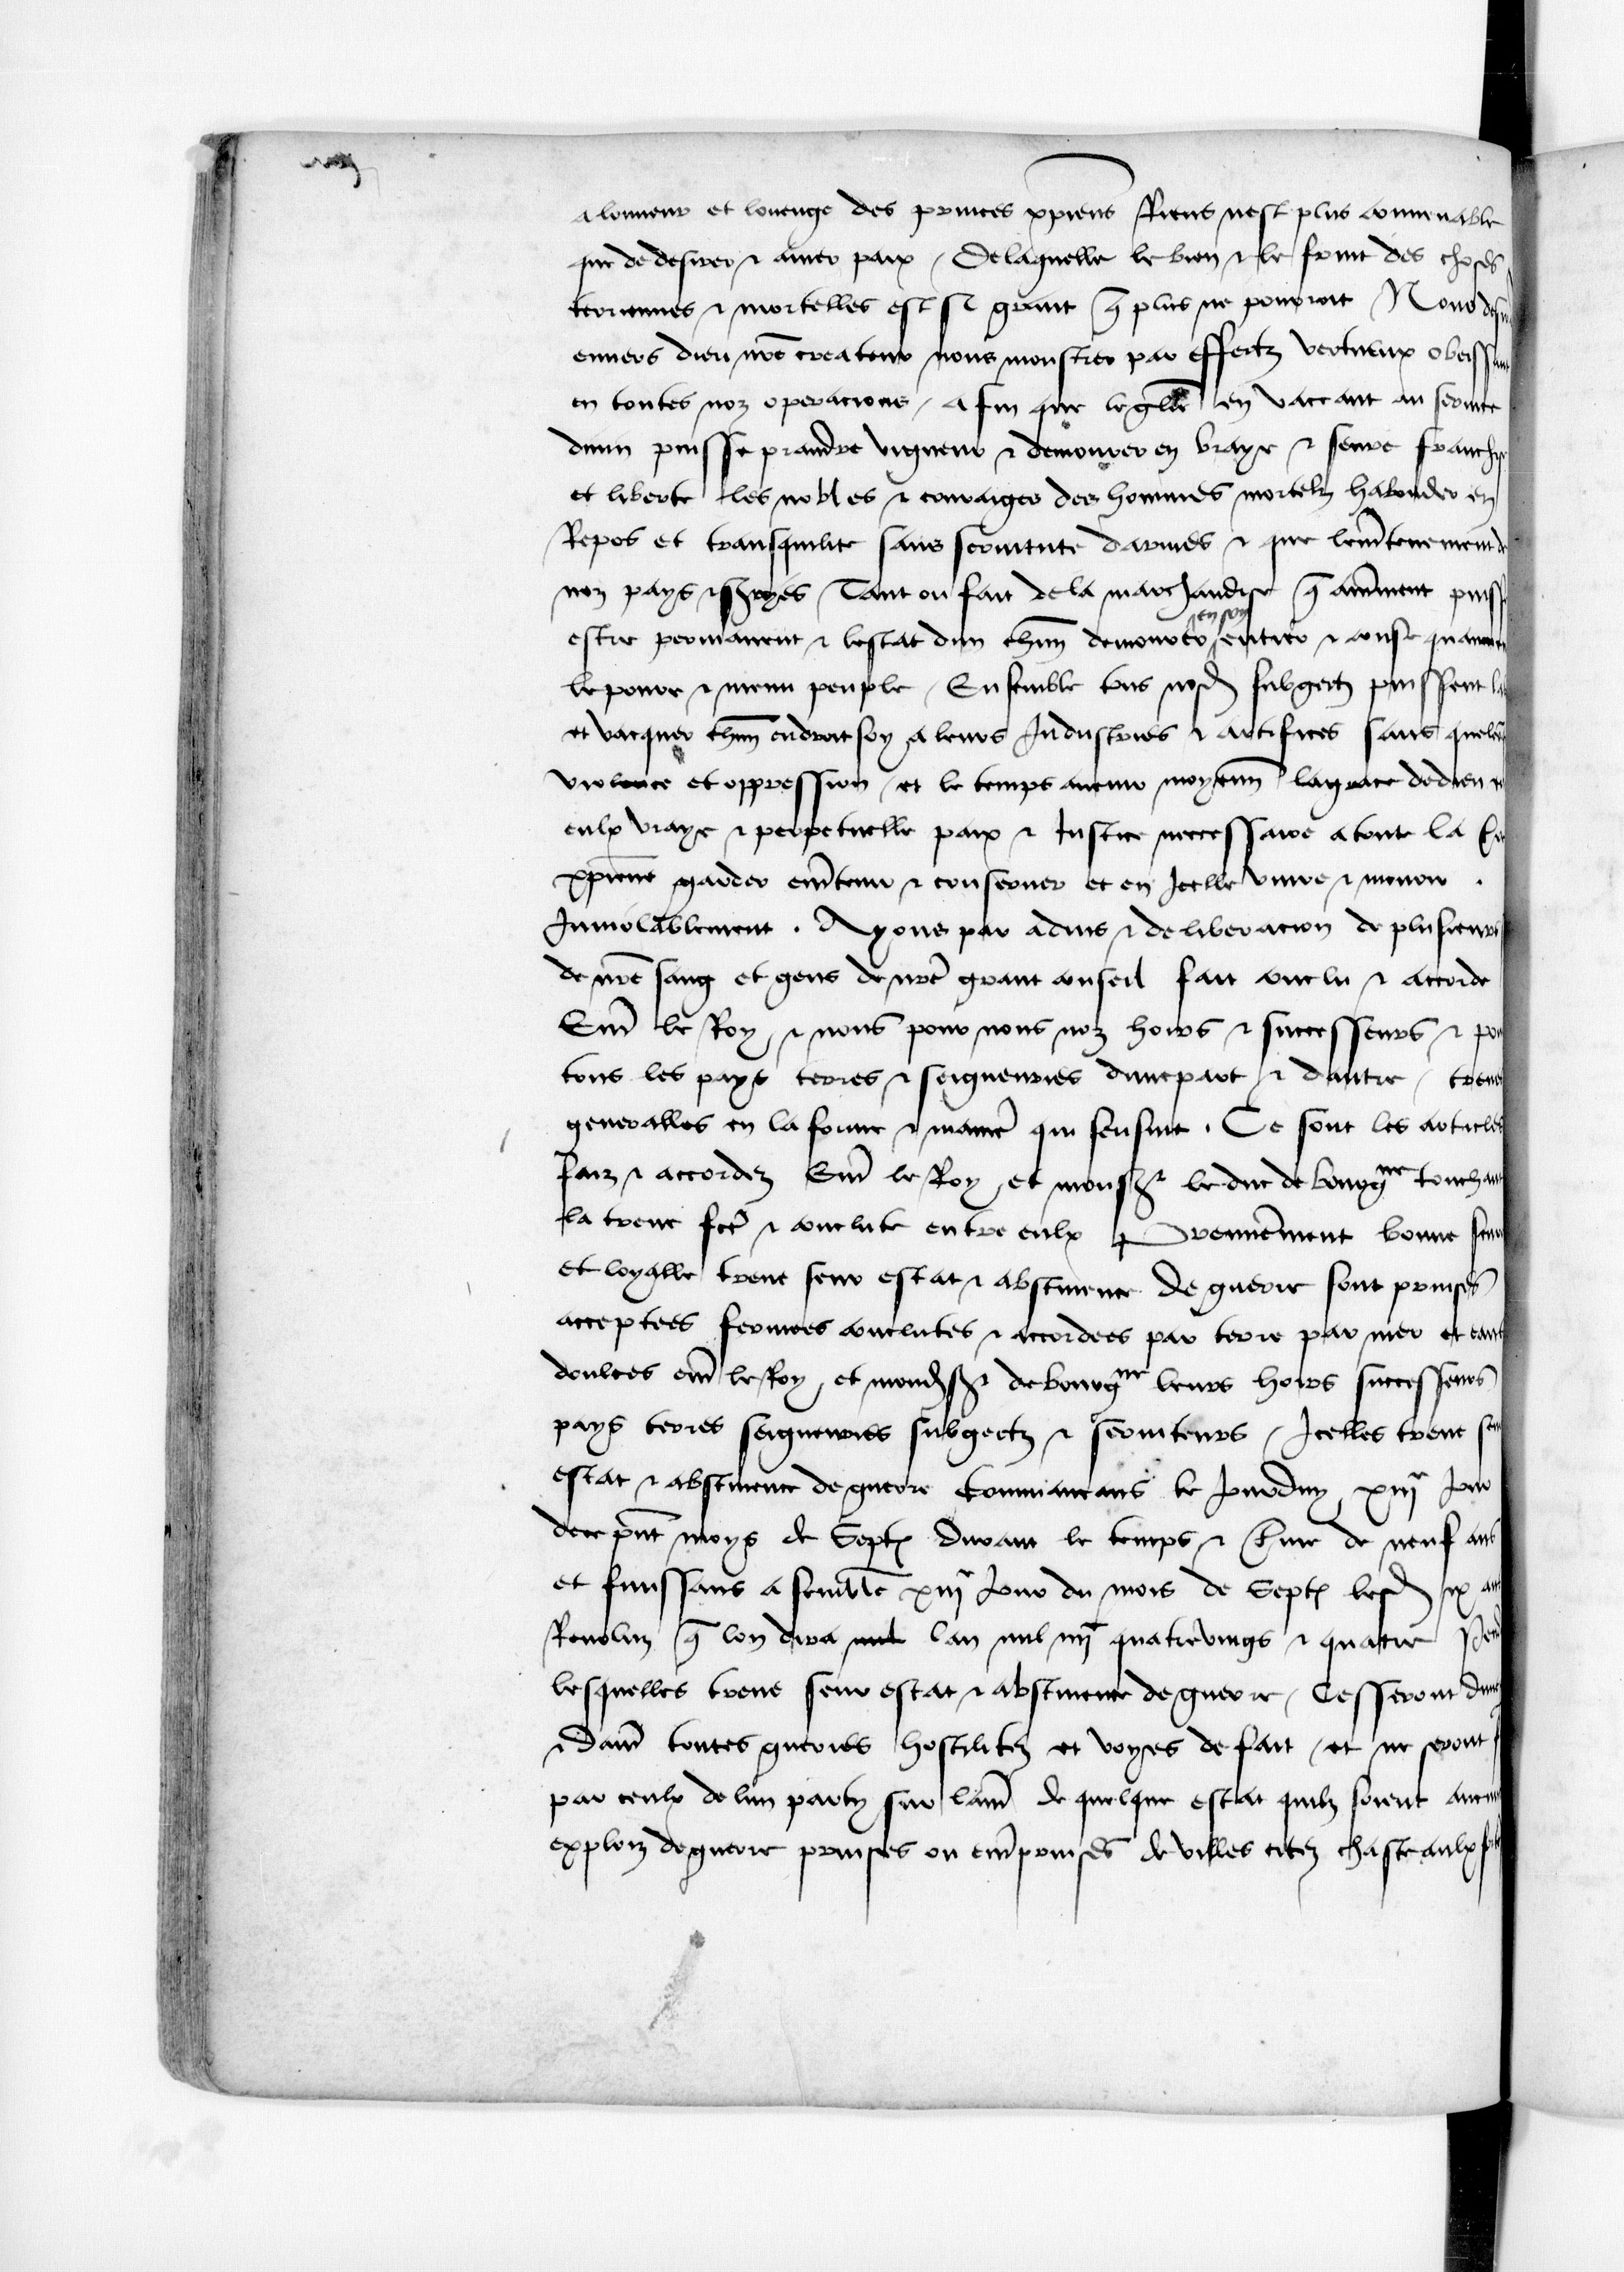 a lonneur et louenge des princes xpiens Riens nest plus convenable
que de desirer & amer paix / De laquelle le bien & le fruit des choses
terriennes & mortelles est si grant q̃ plus ne pourroit / Nous desir
envers dieu nr̃e createur nous monstrer par effectz vertueux obeissans
en toutes noz operacions / a fin que leglĩe en vaccant au service
divin puisse prandre vigueur & demourer en vraye & seure franchise
et liberte les nobles & couraiges des hommes mortelz habonder en
Repos et transquilite sans servitute darmes & que lentr̃tenement de
noz pays & sg̃ries / Tant ou fait de la marchandise q̃ autr̃ement puisse
estre permanent & lestat dun chũn demourer en son entier & consequanment
le povre & menu peuple / Ensemble tous nosd̃ subgectz puissent la
et vacquer chũn endroit soy a leurs Industries & artifices sans quelc
violence et oppression / et le temps avenir moyenñ la grace de dieu
eulx vraye & perpetuelle paix & Justice neccessaire a toute la
xpienne garder entr̃tenir & conserver et en Icelle vivre & mourir .
Inviolablement . Ayons par advis & deliberacion de plusieurs
de nr̃e sang et gens de nr̃e grant conseil fait conclu & accorde
Entr̃ le Roy / & nous pour nous noz hoirs & successeurs & pour
tous les pays terres & seigneuries dune part & dautre / treve
generalles en la forme & manier̃ qui sensuit . Ce sont les articles
faiz & accordez Entr̃ le Roy / et monsgr̃ le duc de bourgne touchant
la treve fc̃e & conclute entre eulx Premier̃ement bonne seure
et loyalle treve seur estat & abstinence de guerre sont prinses
acceptees fermees conclutes & accordees par terre par mer et eaues
doulces entr̃ le Roy / et mond̃ sgr̃ de bourgne leurs hoirs successeurs
pays terres seigneuries subgectz & serviteurs / Icelles treve seur
estat & abstinence de guerre Commancans le Jourduy xiije Jour
de ce pñt moys de Septẽ durant le temps & tẽrme de neuf ans
et finissans a semblãe xiije Jour du mois de Septẽ lesd̃ ix ans
Revoluz q̃ lon dira lan mil iiijc quatrevings & quatre
lesquelles treve seur estat & abstinence de guerre / Cesseront dune
& dautr̃ toutes guerres hostilitez et voyes de fait / et ne seront
par ceulx de lun party sur lautr̃ de quelque estat quilz soient aucuns
exploiz de guerre prinses ou entr̃prinses de villes citez chasteaulx